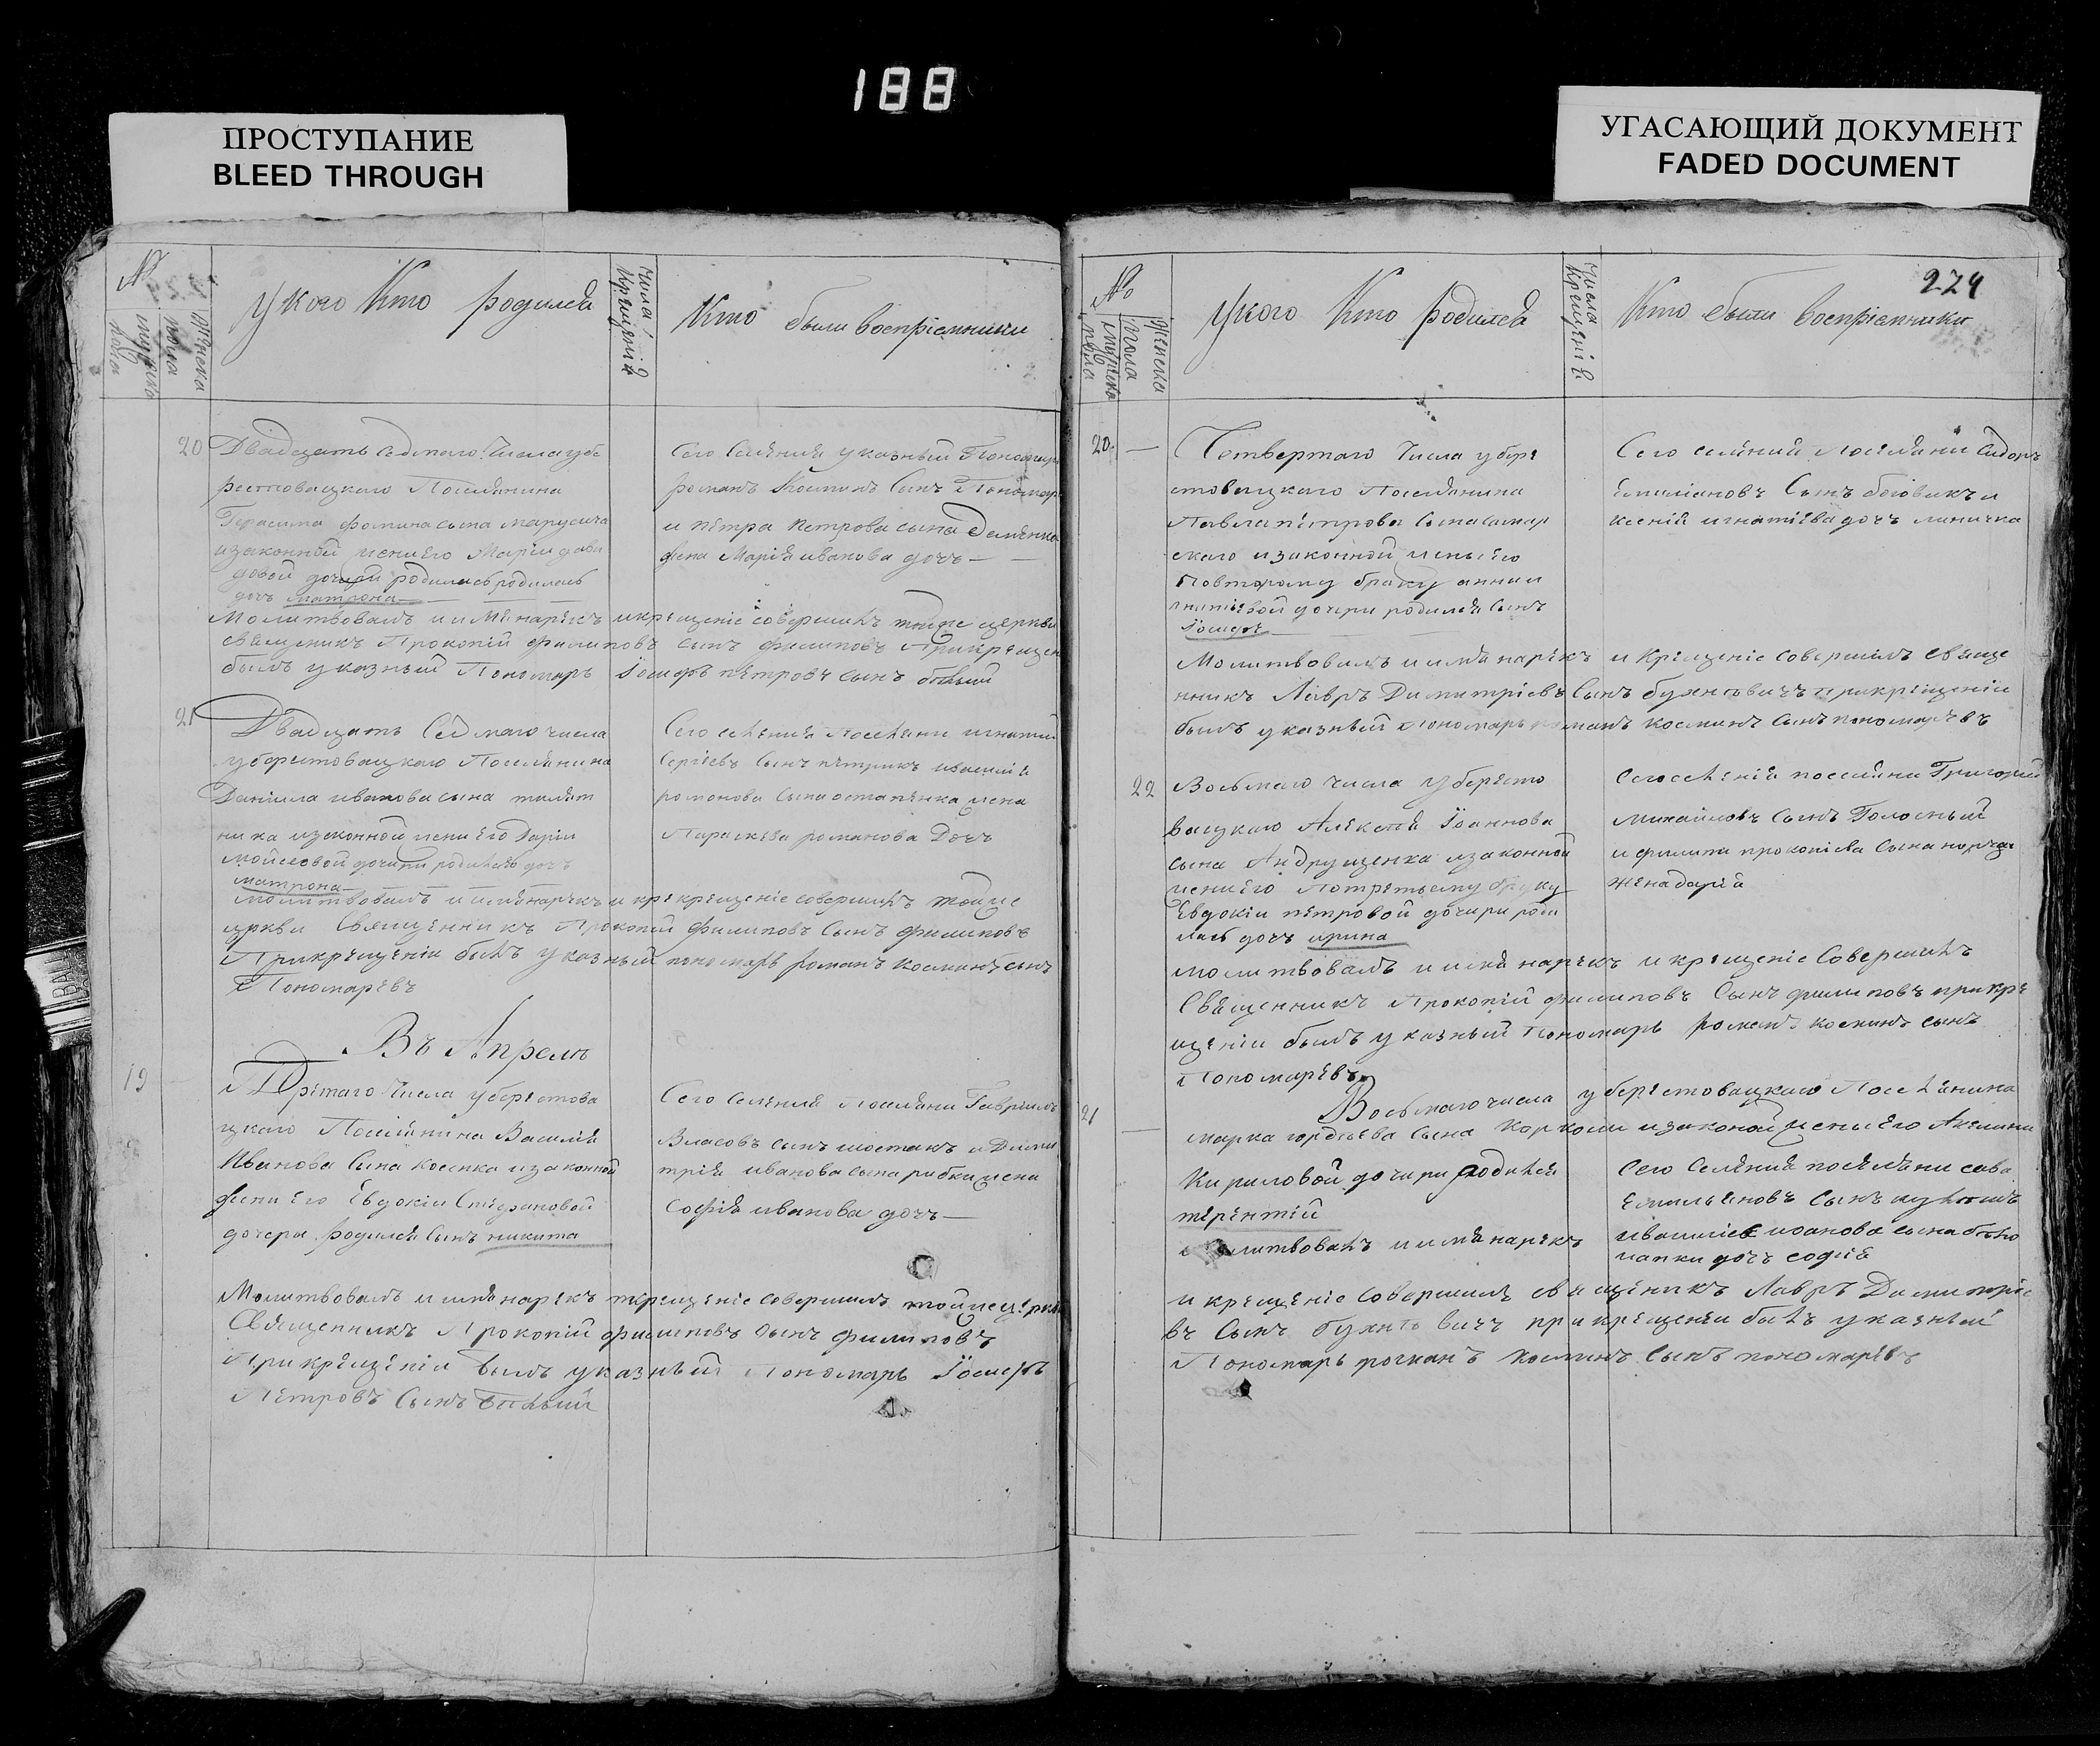 188
ПРОСТУПАНИЕ
BLEED THROUGH
УГАСАЮЩИЙ ДОКУМЕНТ
FADED DOCUMENT
№
мужеска пола
женска пола
У кого Кто родился
Числа Крещенія
Кто были воспріемники
20
Двадцать седмаго Числа у бе
рестовацкаго Поселянина
Герасима фомина сына марусича
изаконной жени его Маріи дави
довой дочери родилась родилась
дочь матрона
Сего Селенія указный Пономарь
романъ Косминъ Сынъ Пономар
и петра петрова сына
жена Марія иванова дочь
Молитвовалъ и имя нарекъ и крещеніе совершилъ тойже церкви
священикъ Прокопій филиповъ сынъ филиповъ При крещен
былъ указный Пономарь Іосифъ петровъ сынъ белый
21
Двадцать Седмаго числа
у берестовацкаго Поселянина
Даніила иванова сына
ника изаконной жени его Даріи
Мойсеовой дочири родилась дочъ
матрона
Сего селенія поселяни игнатий
Сергіевъ Сынъ петрикъ ивасилія
романова сына остапенка жена
Параскева романова Дочъ
молитвовалъ и имя нарекъ и крекрещеніе совершилъ тойже
церкви Священникъ Прокопий филиповъ Сынъ филиповъ
При крещеніи былъ указный пономарь романъ косминъ сынъ
Пономаревъ
Въ Апреле
19
Третаго Числа у берестова
цкаго Поселянина Василія
Иванова Сина косенка изаконной
жени его Евдокіи Стефановой
дочери родился Сынъ никита
Сего Селенія Поселяни Гавріилъ
Власовъ сынъ шостакъ и Дими
трія иванова сына рибки жена
Софія иванова дочъ
Молитвовалъ и имя нарекъ крещеніе совершилъ тойже церкви
Священникъ Прокопій филиповъ сынъ филиповъ
При крещеніи былъ указный Пономарь Іосифъ
Петровъ Сынъ Белый
224
№
мужеска пола
женска пола
У кого Кто родился
Числа Крещенія
Кто были воспріемники
20
Четвертаго Числа у бере
стовацкаго Поселянина
Павла петрова Сына самар
скаго изаконной жены его
По второму браку анни
игнатіевой дочери родился сынъ
Іосифъ
Сего селений Поселяни Сидоръ
Емилиановъ Сынъ боговикъ и
ксений игнатіева дочъ
Молитвовалъ и имя нарекъ и Крещеніе совершилъ свяще
нникъ Лавръ Димитріевъ Сынъ при крещеніи
былъ указный Пономарь романъ косминъ сынъ пономаревъ
22
Восьмаго числа у бересто
вацкаго Алексея Іоаннова
сына Андрущенка изаконной
жени его По третьему браку
Евдокіи петровой дочири роди
лась дочъ ирина
Сего селеній поселяни Григорий
Михайловъ сынъ Голосный
и филипа прокопіева сына
жена дарія
молитвовалъ и имя нарекъ и крещеніе Совершилъ
Священникъ Прокопій филиповъ Сынъ филиповъ при кре
щеніи былъ указный Пономарь романъ косминъ сынъ
Пономаревъ
21
Восьмаго числа у берестовацкаго Поселянина
марка гордеева сына изаконой жены его
Кириловой дочири родился
терентий
Сего Селения поселяни сава
Емильяновъ Сынъ
ивасилиев иоанова сына бело
лапки дочъ софія
молитвовалъ и имя нарекъ
и крещеніе Совершилъ священикъ Лавръ Димитріе
въ Сынъ при крещеніи былъ указный
Пономарь романъ косминъ сынъ пономаревъ